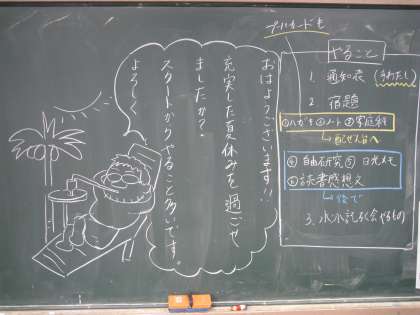 おはようございます!!
充実した夏休みを過ごせ
ましたか?
スタートからやること多いです。
よろしく
プールカードも
やること
1. 通知表(うわだし)
2 宿題
①ハガキ②ノート③家庭科
→配ぜん台へ
④自由研究⑤日光メモ
⑥読書感想文
→後で
3. 水泳記録会やるもの